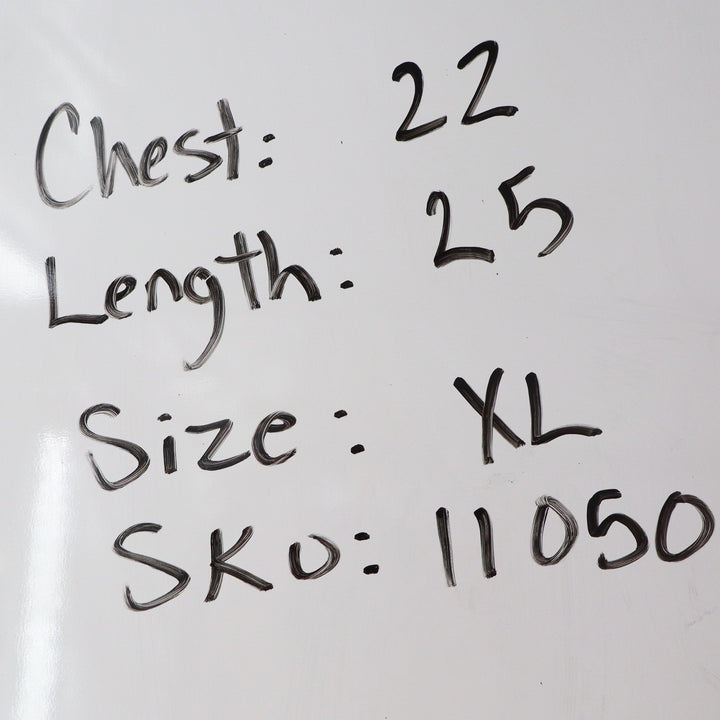 Chest: 22
Length: 25
Size: XL
SKU: 11050